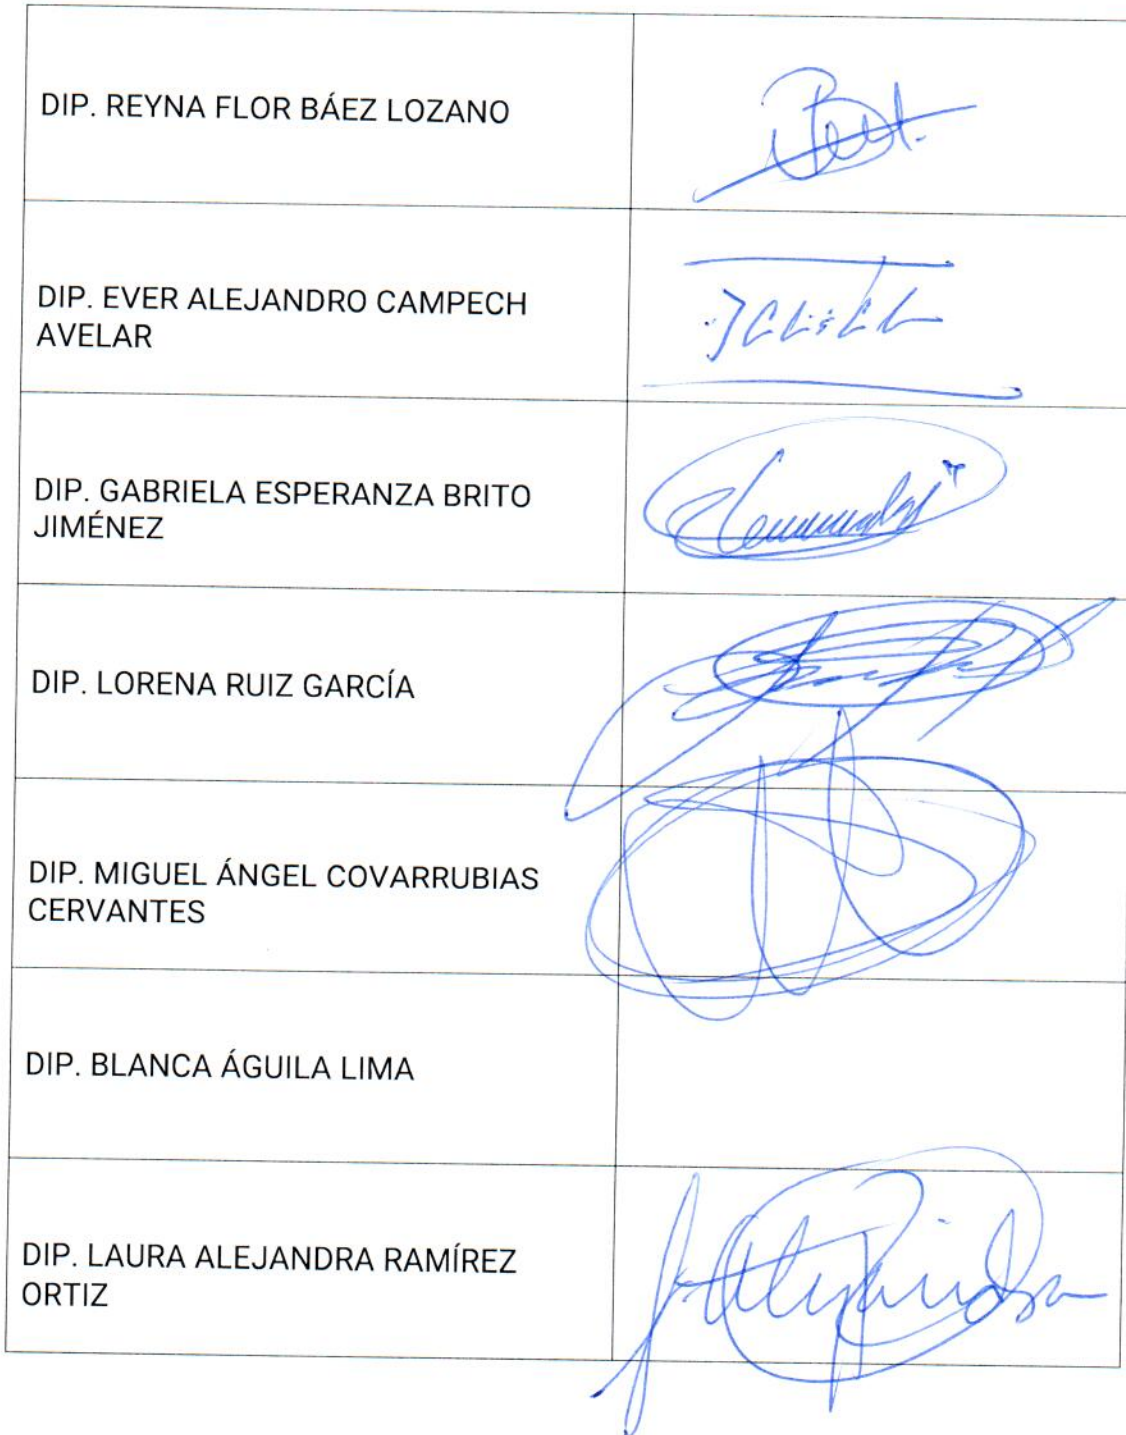 DIP. REYNA FLOR BÁEZ LOZANO
DIP. EVER ALEJANDRO CAMPECH
AVELAR
DIP. GABRIELA ESPERANZA BRITO
JIMÉNEZ
DIP. LORENA RUIZ GARCÍA
DIP. MIGUEL ÁNGEL COVARRUBIAS
CERVANTES
DIP. BLANCA ÁGUILA LIMA
DIP. LAURA ALEJANDRA RAMÍREZ
ORTIZ